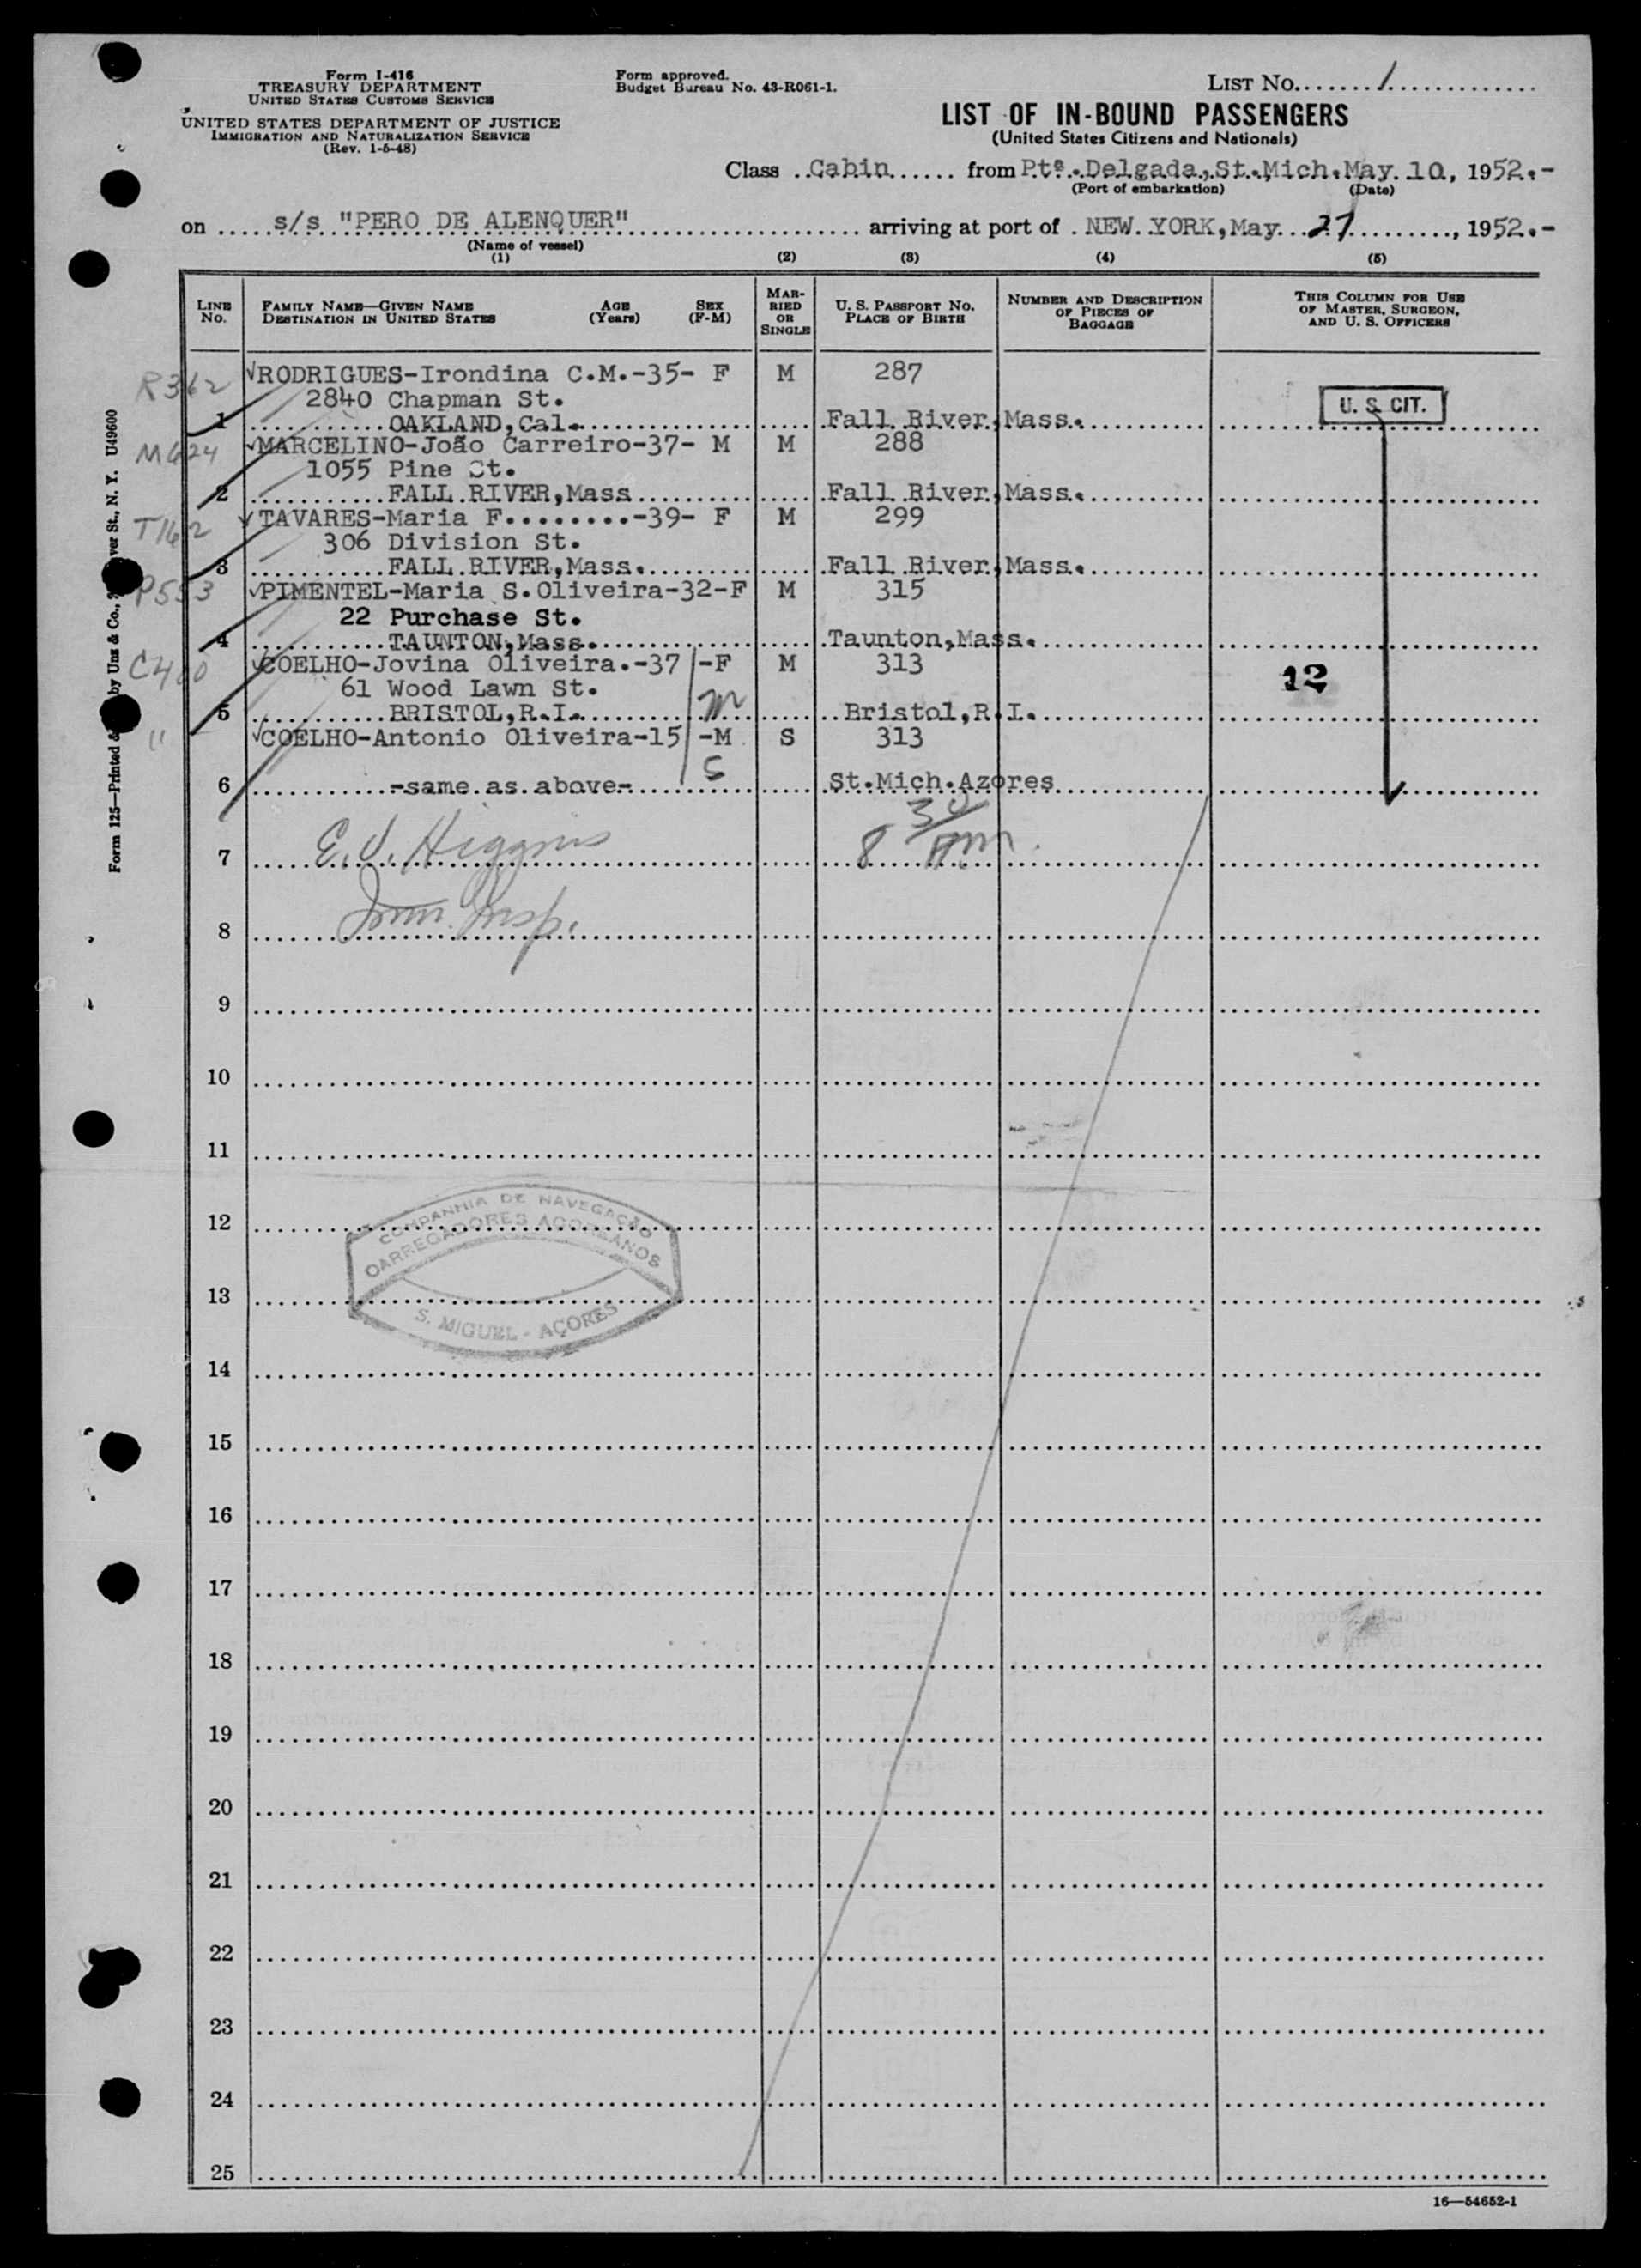 Form I-416
TREASURY DEPARTMENT
UNITED STATES CUSTOMS SERVICE
UNITED STATES DEPARTMENT OF JUSTICE
IMMIGRATION AND NATURALIZATION SERVICE
(Rev. 1-5-48)
Form approved.
Budget Bureau No. 43-R061-1.
LIST No. 1
LIST OF IN-BOUND PASSENGERS
(United States Citizens and Nationals)
Class Cabin from Ptª.Delgada,St.Mich.May 10, 1952.-
(Port of embarkation) (Date)
on s/s "PERO DE ALENQUER" arriving at port of NEW YORK,May 27, 1952.-
(Name of vessel)
(1) (2) (3) (4) (5)
LINE No. FAMILY NAME—GIVEN NAME DESTINATION IN UNITED STATES AGE (Years) SEX (F-M) MARRIED OR SINGLE U. S. PASSPORT NO. PLACE OF BIRTH NUMBER AND DESCRIPTION OF PIECES OF BAGGAGE THIS COLUMN FOR USE OF MASTER, SURGEON, AND U. S. OFFICERS
R362 RODRIGUES-Irondina C.M.-35- F M 287
2840 Chapman St.
U. S. CIT.
1 OAKLAND,Cal. Fall River,Mass.
M624 MARCELINO-João Carreiro-37- M M 288
1055 Pine St.
2 FALL RIVER,Mass Fall River,Mass.
T162 TAVARES-Maria F........-39- F M 299
306 Division St.
3 FALL RIVER,Mass. Fall River,Mass.
P553 PIMENTEL-Maria S.Oliveira-32-F M 315
22 Purchase St.
4 TAUNTON,Mass. Taunton,Mass.
C400 COELHO-Jovina Oliveira.-37 -F M 313
12
61 Wood Lawn St.
5 BRISTOL,R.I. m Bristol,R.I.
" COELHO-Antonio Oliveira-15 -M S 313
S
6 -same as above- St.Mich.Azores
7 E. J. Higgins 8 30 AM.
8 Imm. Insp.
9
10
11
12
COMPANHIA DE NAVEGAÇÃO
CARREGADORES AÇOREANOS
13
S. MIGUEL - AÇORES
14
15
16
17
18
19
20
21
22
23
24
25
16—54652-1
Form 125—Printed by Unz & Co., ver St., N. Y. U49600